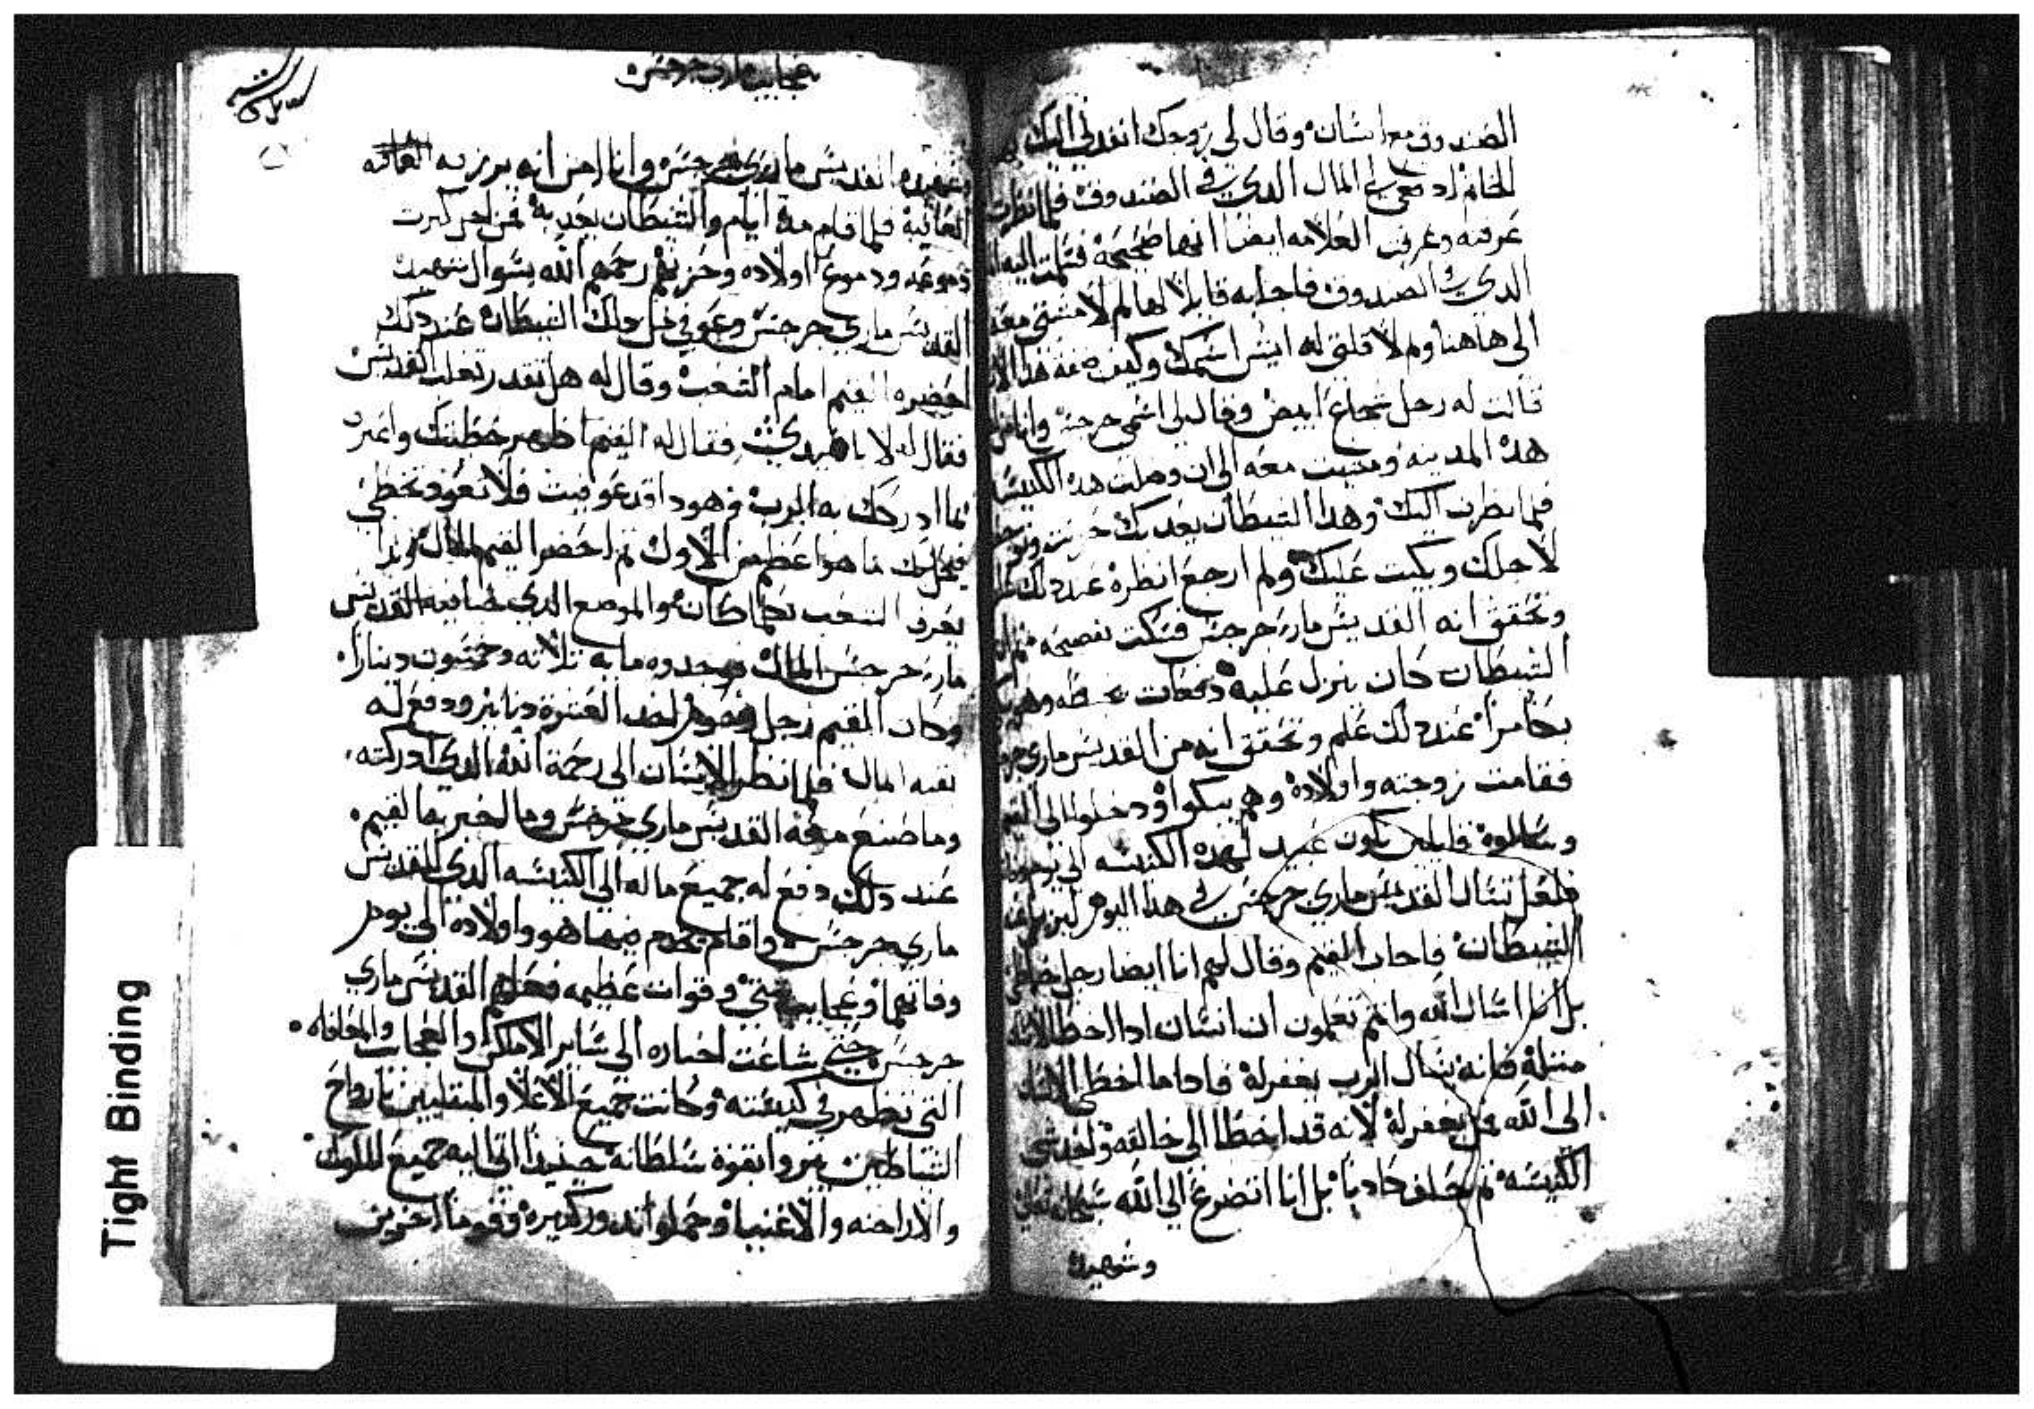 الصندوق مع انسان وقال لي زوجك انفدني اليك
الخاتم ادفعي لي المال الدي في الصندوق فلما نظرت
عرفته وعرفت العلامه ايضا انها صحيحة فسلمت اليه
الدي في الصندوق فاجابه قايلا لها لم لا مشتي معه
الى هاهنا ولم لا قلتي له ايش اسمك وكيف صفة هدا
قالت له رجل شجاع ابيض وقال لي اسمي جرجس وانا من
هده المدينه ومشيت معه الى ان وصلت هده الكنيسة
فلما نظرت اليك وهدا الشيطان يعدبك حزنت
لاجلك وبكيت عليك ولم ارجع انظره عند دلك علم
وتحقق انه القديس ماري جرجس فسكت نفسه
الشيطان كان ينزل عليه دفعات يخبطه وهو
عند دلك علم وتحقق انه من القديس ماري جرجس
فقامت زوجته واولاده وهم يبكوا ودخلوا الى القيم
وسالوه قايلين نكون عبيد لهده الكنيسه
فلعل تسال القديس ماري جرجس في هدا اليوم
الشيطان فاجاب القيم وقال لهم انا ايضا رجل خاطي
بل انا اسال الله وانتم تعلمون ان انسان ادا اخطا
مثله فانه يسال الرب يغفر له فادا ما اخطى الانسان
الى الله من يغفر له لانه قد اخطا الى خالقه
الكنيسه ثم حلف كادبا بل انا اتضرع الى الله
وشهيده
عجايب ماري جرجس
وشهيده القديس ماري جرجس وانا امن انه يرزقه
العافية فلما قام مدة ايام والشيطان يعدبه فمن اجل كترت
دموعه ودموع اولاده وحزنهم رحمهم الله بسوال شهيده
القديس ماري جرجس وعوفي من دلك الشيطان عند دلك
احضره القيم امام الشعب وقال له هل تقدر تغلب القديس
فقال له لا يا سيدي فقال له القيم اظهر خطيتك واعترف
بما ادركك به الرب فهودا قد عوفيت فلا تعود تخطي
فيحل بك ما هو اعظم من الاول ثم احضر القيم المال
يعرف الشعب بكلما كان والموضع الدي خبا فيه القديس
ماري جرجس المال فوجدوه مايه تلاته وخمسون دينارا
وكان القيم رجل فاخد العشرة دنانير ودفع له
بقية المال فلما نظر الانسان الى رحمة الله الدي ادركته
وما صنع معه القديس ماري جرجس وما اخبر به القيم
عند دلك دفع له جميع ماله الى الكنيسه الدي للقديس
ماري جرجس واقام يخدم فيها هو واولاده الى يوم
وفاتهم وعجايب شتى وقوات عظيمه فعلهم القديس ماري
جرجس حتى شاعت اخباره الى ساير الاماكن والعجايب
التي تظهر في كنيسته وكانت جميع الاعلا والمبتليين بارواح
الشياطين يبروا بقوة سلطانه حينيدا اتى اليه جميع الملوك
والاراخنه والاغنيا وحملوا اليه ندور كتيرة وقوما اخرين
Tight Binding